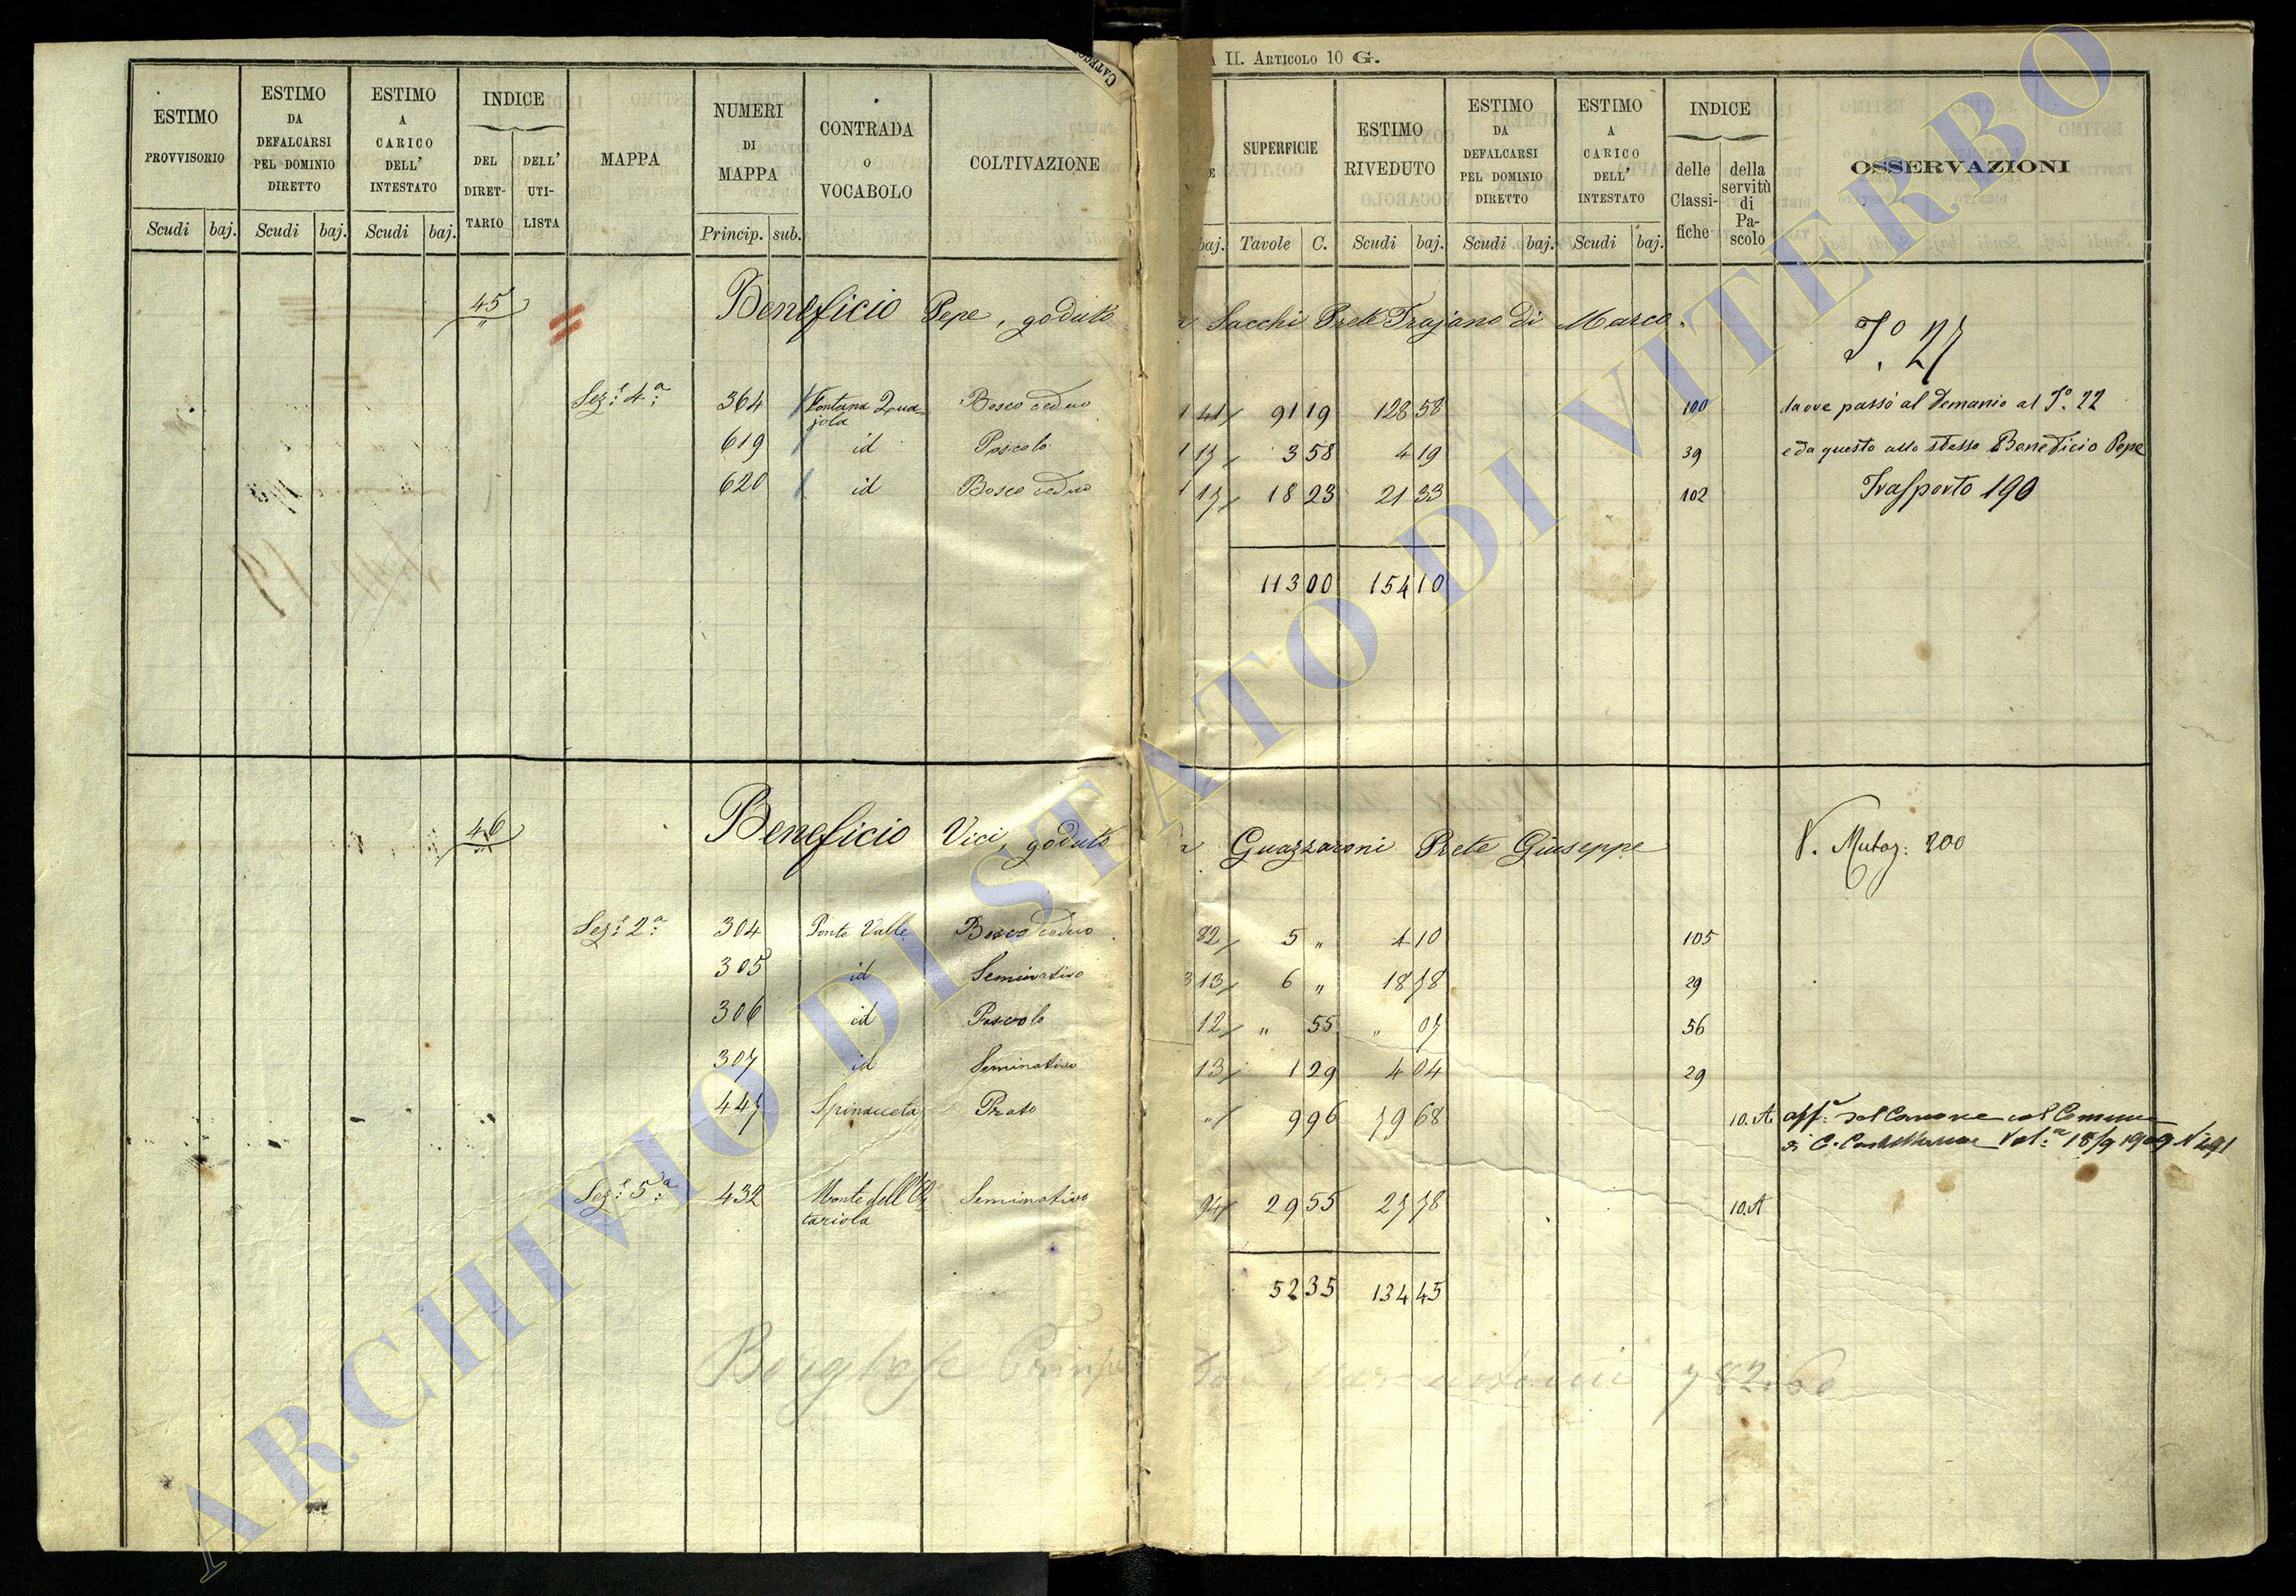 CATEGO
A II. ARTICOLO 10 G.
ESTIMO PROVVISORIO Scudi baj.
ESTIMO DA DEFALCARSI PEL DOMINIO DIRETTO Scudi baj.
ESTIMO A CARICO DELL' INTESTATO Scudi baj.
INDICE DEL DIRETTARIO DELL' UTILISTA
MAPPA
NUMERI DI MAPPA Princip. sub.
CONTRADA O VOCABOLO
COLTIVAZIONE
E baj.
SUPERFICIE Tavole C.
ESTIMO RIVEDUTO Scudi baj.
ESTIMO DA DEFALCARSI PEL DOMINIO DIRETTO Scudi baj.
ESTIMO A CARICO DELL' INTESTATO Scudi baj.
INDICE delle Classifiche della servitù di Pascolo
OSSERVAZIONI
45 Beneficio Pepe, goduto a Sacchi Prete Trajano di Marco.
T.º 27
Sez.e 4.a 364 Fontana Quajola Bosco ceduo 1 41 91 19 128 58 100 da ove passò al Demanio al T.º 22
619 id Pascolo 1 17 3 58 4 19 39 e da questo allo stesso Beneficio Pepe
620 id Bosco ceduo 1 17 18 23 21 33 102 Trasporto 190
113 00 154 10
46 Beneficio Vici, goduto a Guazzaroni Prete Giuseppe V. Mutaz: 200
Sez.e 2.a 304 Ponte Valle Bosco ceduo 82 5 " 4 10 105
305 id Seminativo 3 13 6 " 18 78 29
306 id Pascolo 12 " 55 " 07 56
307 id Seminativo 13 1 29 4 04 29
447 Spinaceta Prato " 9 96 79 68 10.A aff.e del Canone col Comune
di C. Castellana Vol.a 18/9 1909 N 291
Sez.e 5.a 432 Monte dell'Ottariola Seminativo 94 29 55 27 78 10.A
52 35 134 45
Borghese Principe Don Marcantonio
ARCHIVIO DI STATO DI VITERBO